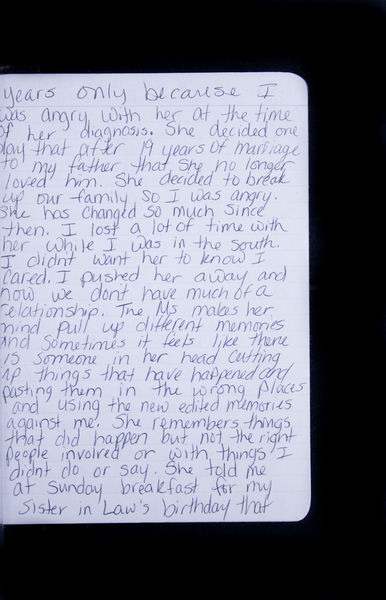 years only because I
was angry with her at the time
of her diagnosis. She decided one
day that after 19 years of marriage
to my father that she no longer
loved him. She decided to break
up our family so I was angry.
She has changed so much since
then. I lost a lot of time with
her while I was in the south.
I didnt want her to know I
cared. I pushed her away and
now we don't have much of a
relationship. The Ms makes her
mind pull up different memories
and sometimes it feels like there
is someone in her head cutting
up things that have happened and
pasting them in the wrong places
and using the new edited memories
against me. She remembers things
that did happen but not the right
people involved or with things I
didnt do or say. She told me
at Sunday breakfast for my
Sister in Law's birthday that